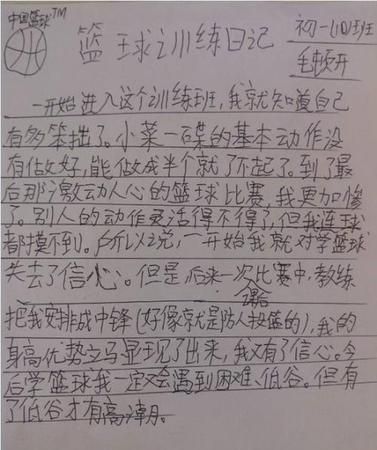 中国篮球™
篮球训练日记
初一(10)班
毛顿开
一开始进入这个训练班,我就知道自己
有多笨拙了。小菜一碟的基本动作没
有做好,能做成半个就了不起了。到了最
后那激动人心的篮球比赛,我更加惨
了。别人的动作灵活得不得了,但我连球
都摸不到。所以说,一开始我就对学篮球
失去了信心。但是后来一次比赛中,教练
把我安排成中锋(好像就是防人投篮的),我的
身高优势立马显现了出来,我又有了信心。今
后学篮球我一定又会遇到困难、低谷。但有
了低谷才有高潮。